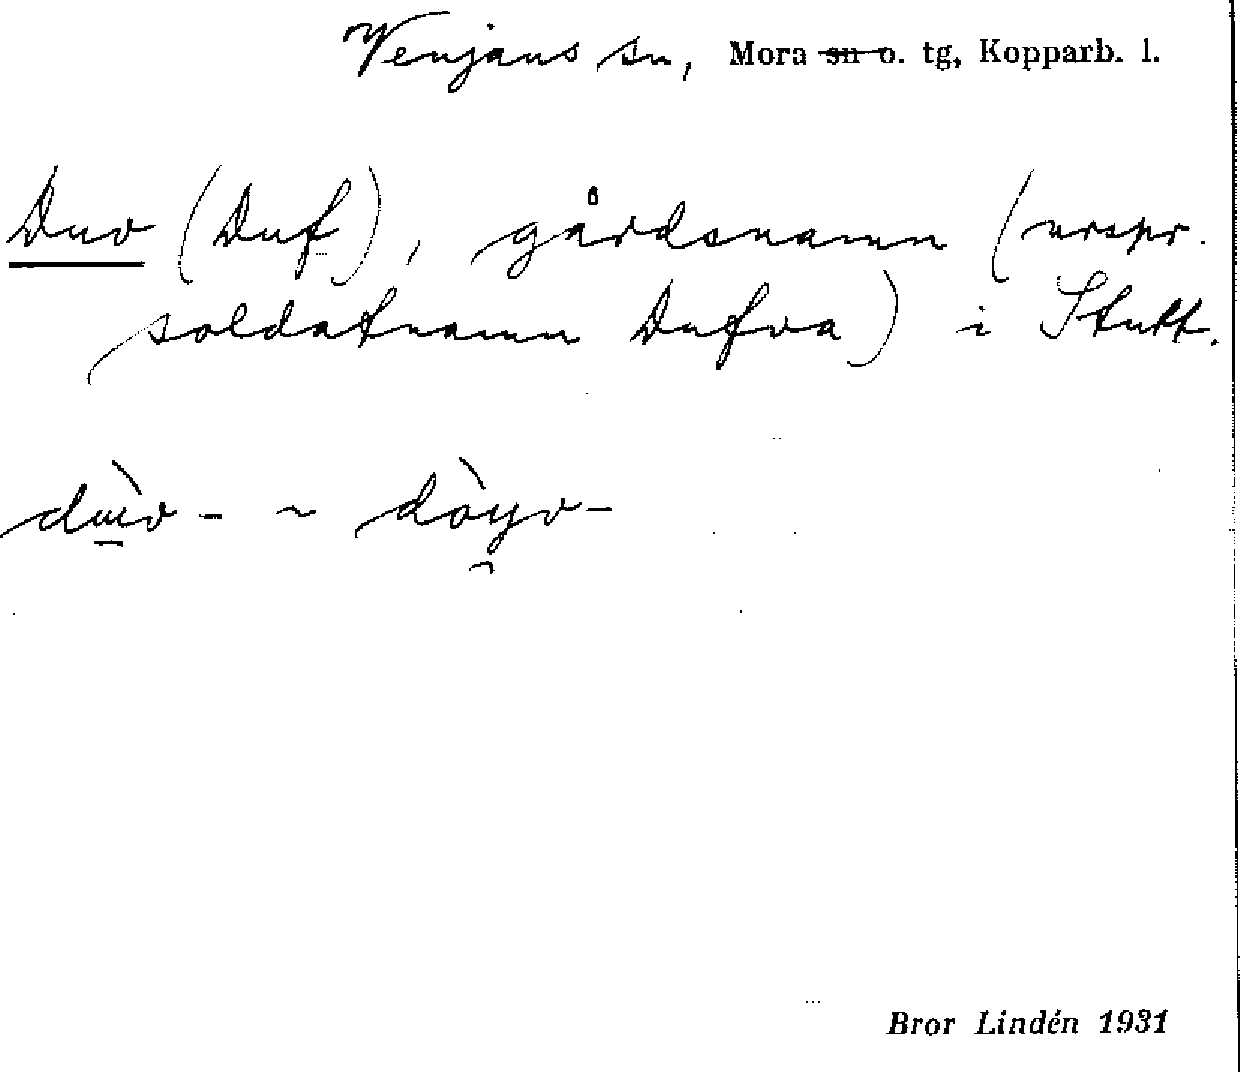 Venjans sn, Mora sn o. tg, Kopparb. l.
Duv (Duf), gårdsnamn (urspr.
soldatnamn Dufva) i Stutt.
dùv- ~ dòyv-
Bror Lindén 1931